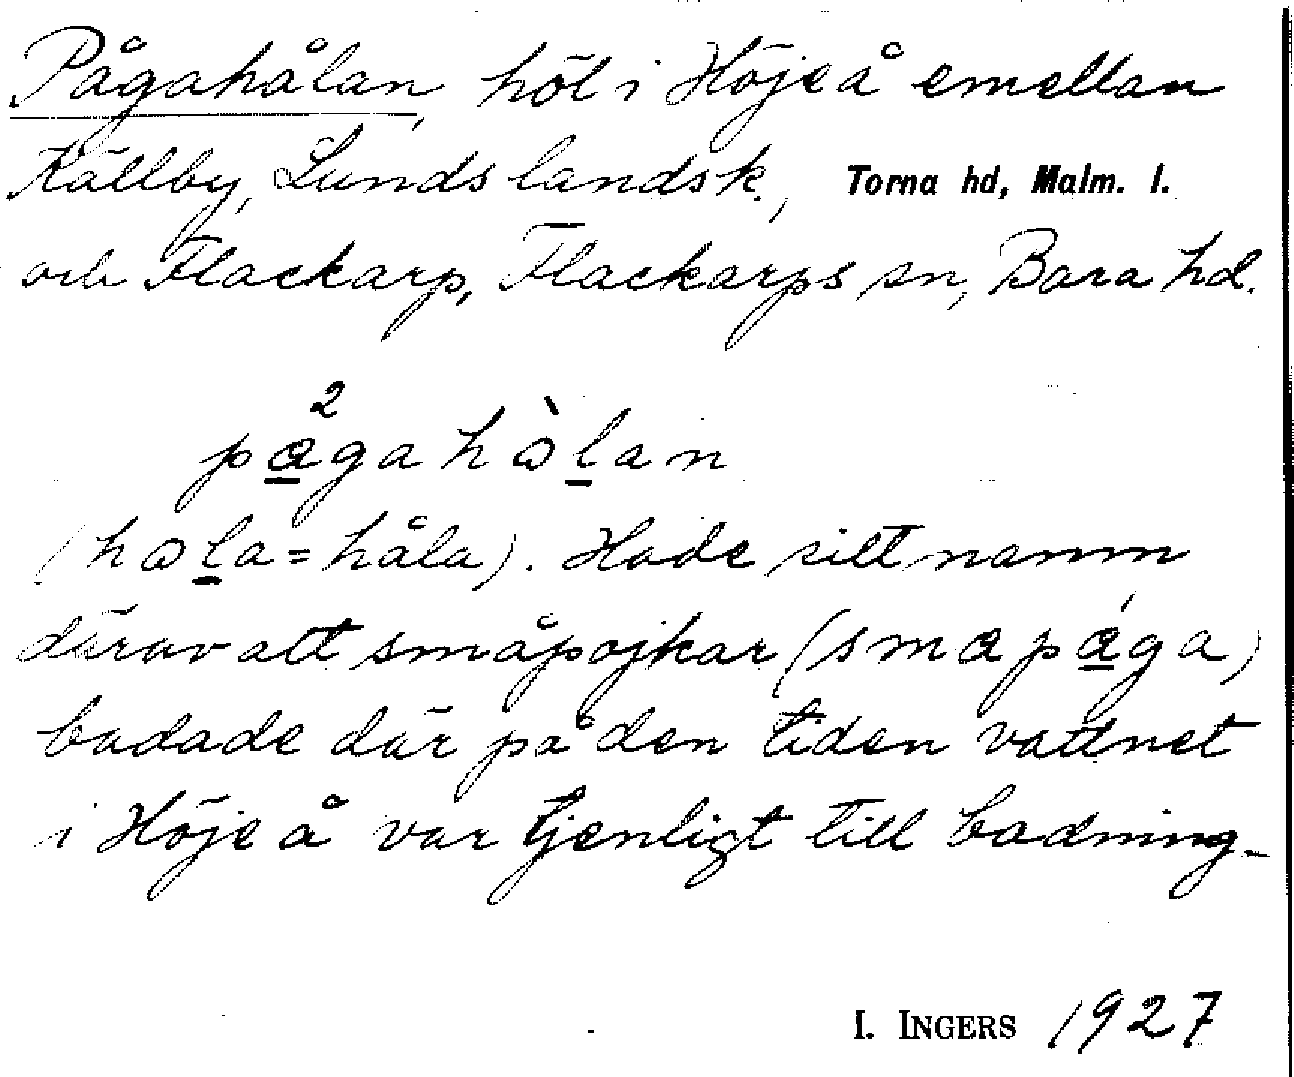 Pågahålan, höl i Höjeå emellan
Källby, Lunds landsk., Torna hd, Malm. l.
och Flackarp, Flackarps sn, Bara hd.
2
pågahòlan
(hola = håla). Hade sitt namn
därav att småpojkar (småpåga)
badade där på den tiden vattnet
i Höje å var tjenligt till badning.
I. INGERS 1927